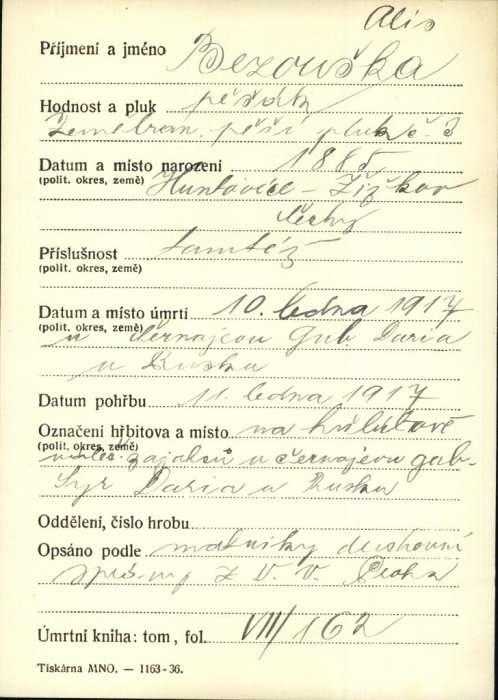 Alis
Příjmení a jméno Bezouška
Hodnost a pluk pěšák
Zeměbran. pěší pluk č. 3
Datum a místo narození 1885
(polit. okres, země) Huntovice - Žižkov
Čechy
Příslušnost tamtéž
(polit. okres, země)
Datum a místo úmrtí 10. ledna 1917
(polit. okres, země) u Černajevu gub Daria
u Rusku
Datum pohřbu 11. ledna 1917
Označení hřbitova a místo na hřbitově
(polit. okres, země) zajatců u Černajevu gub.
Syr Daria u Rusku
Oddělení, číslo hrobu
Opsáno podle matriky duchovní
správy Z. V. V. Praha
Úmrtní kniha: tom, fol. VIII/162
Tiskárna MNO. — 1163-36.